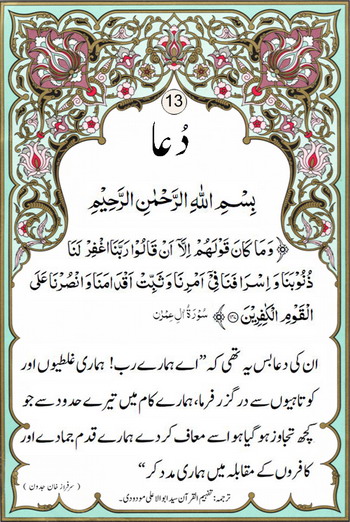 13
دُعا
بِسْمِ اللّٰهِ الرَّحْمٰنِ الرَّحِيْمِ
﴿وَمَا كَانَ قَوْلَهُمْ اِلَّآ اَنْ قَالُوْا رَبَّنَا اغْفِرْ لَنَا
ذُنُوْبَنَا وَ اِسْرَافَنَا فِيْٓ اَمْرِنَا وَ ثَبِّتْ اَقْدَامَنَا وَ انْصُرْنَا عَلَى
الْقَوْمِ الْكٰفِرِيْنَ﴾ سُوْرَةُ اٰلِ عِمْرٰن
ان کی دعا بس یہ تھی کہ ”اے ہمارے رب! ہماری غلطیوں اور
کوتاہیوں سے درگزر فرما، ہمارے کام میں تیرے حدود سے جو
کچھ تجاوز ہو گیا ہو اسے معاف کر دے ہمارے قدم جما دے اور
کافروں کے مقابلہ میں ہماری مدد کر“
(سرفراز خان جدون)
ترجمہ: تفہیم القرآن سید ابوالاعلی مودودی۔